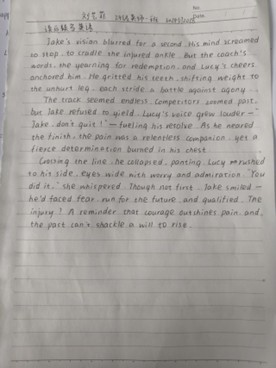 No.
Date.
Jake's vision blurred for a second. His mind screamed
to stop, to cradle the injured ankle. But the coach's
words, the yearning for redemption, and Lucy's cheers
anchored him. He gritted his teeth, shifting weight to
the unhurt leg, each stride a battle against agony.
The track seemed endless. Competitors seemed past,
but Jake refused to yield. Lucy's voice grew louder —
"Jake, don't quit!" — fueling his resolve. As he neared
the finish, the pain was a relentless companion, yet a
fierce determination burned in his chest.
Crossing the line, he collapsed, panting. Lucy rushed
to his side, eyes wide with worry and admiration. "You
did it," she whispered. Though not first, Jake smiled —
he'd faced fear, run for the future, and qualified. The
injury? A reminder that courage outshines pain, and
the past can't shackle a will to rise.